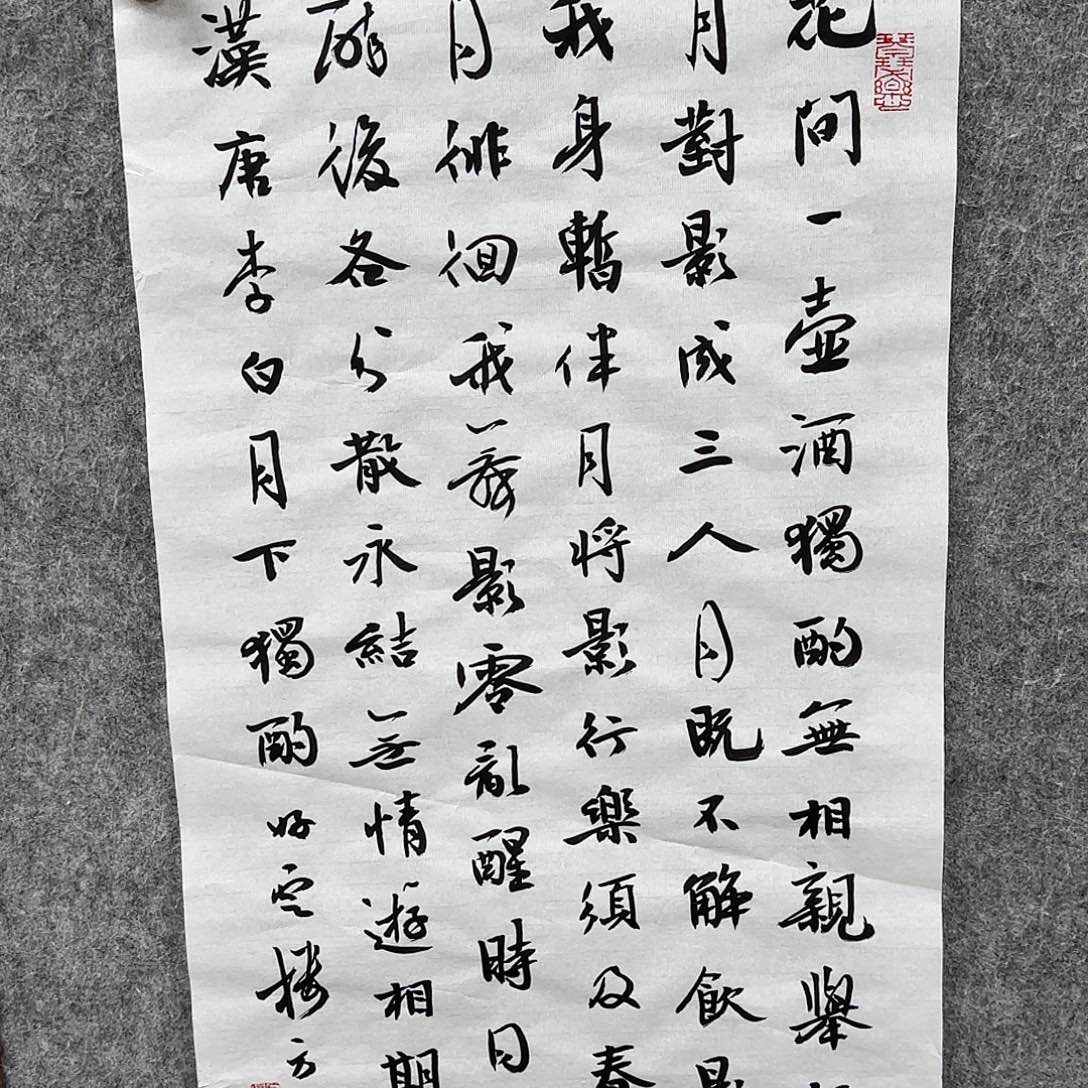 花間一壺酒獨酌無相親舉
月對影成三人月既不解飲影
我身暫伴月將影行樂須及春
月徘徊我舞影零亂醒時同
醉後各分散永結無情遊相期
漢唐李白月下獨酌好樓方